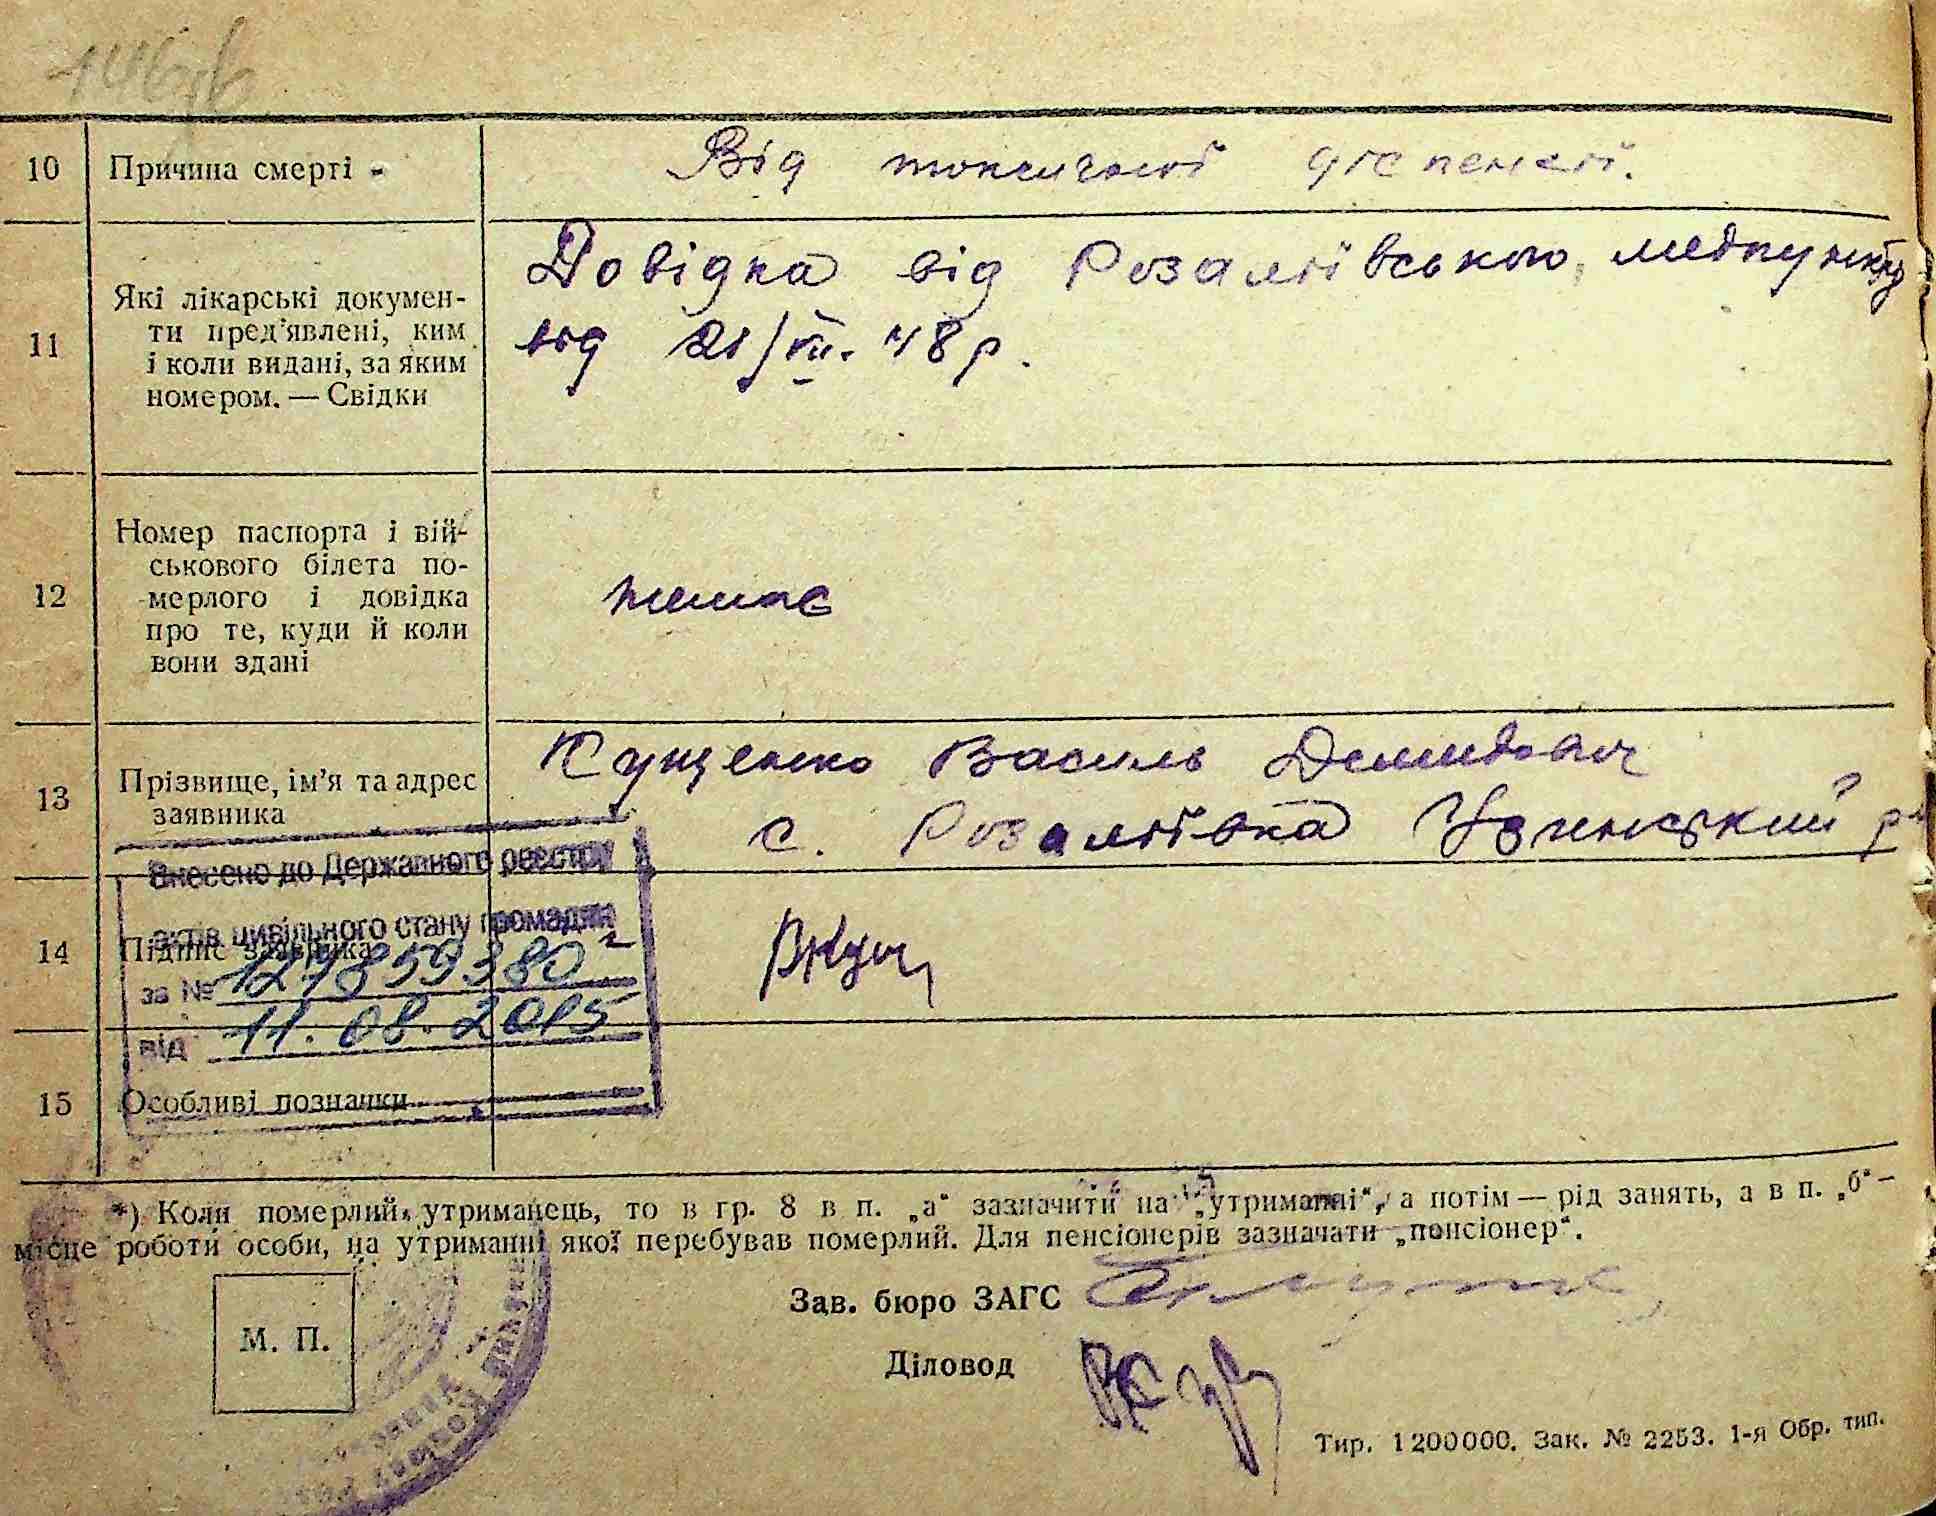 10 Причина смерті - Від токсичної диспенсії.
11 Які лікарські докумен-
ти пред'явлені, ким
і коли видані, за яким
номером. — Свідки
Довідка від Розаліївського медпункту
від 21/VII. 48 р.
12 Номер паспорта і вій-
ськового білета по-
мерлого і довідка
про те, куди й коли
вони здані
немає
13 Прізвище, ім'я та адрес
заявника
Кущенко Василь Демидович
с. Розаліївка Узинський р-
Внесено до Державного реєстру
актів цивільного стану громадян
14 Підпис заявника
за № 127859380
від 11.08.2015
15 Особливі позначки
*) Коли померлий утриманець, то в гр. 8 в п. „а“ зазначити на „утриманні“, а потім — рід занять, а в п. „б“ —
місце роботи особи, на утриманні якої перебував померлий. Для пенсіонерів зазначати „пенсіонер“.
Зав. бюро ЗАГС
М. П.
Діловод
Тир. 1200000. Зак. № 2253. 1-я Обр. тип.